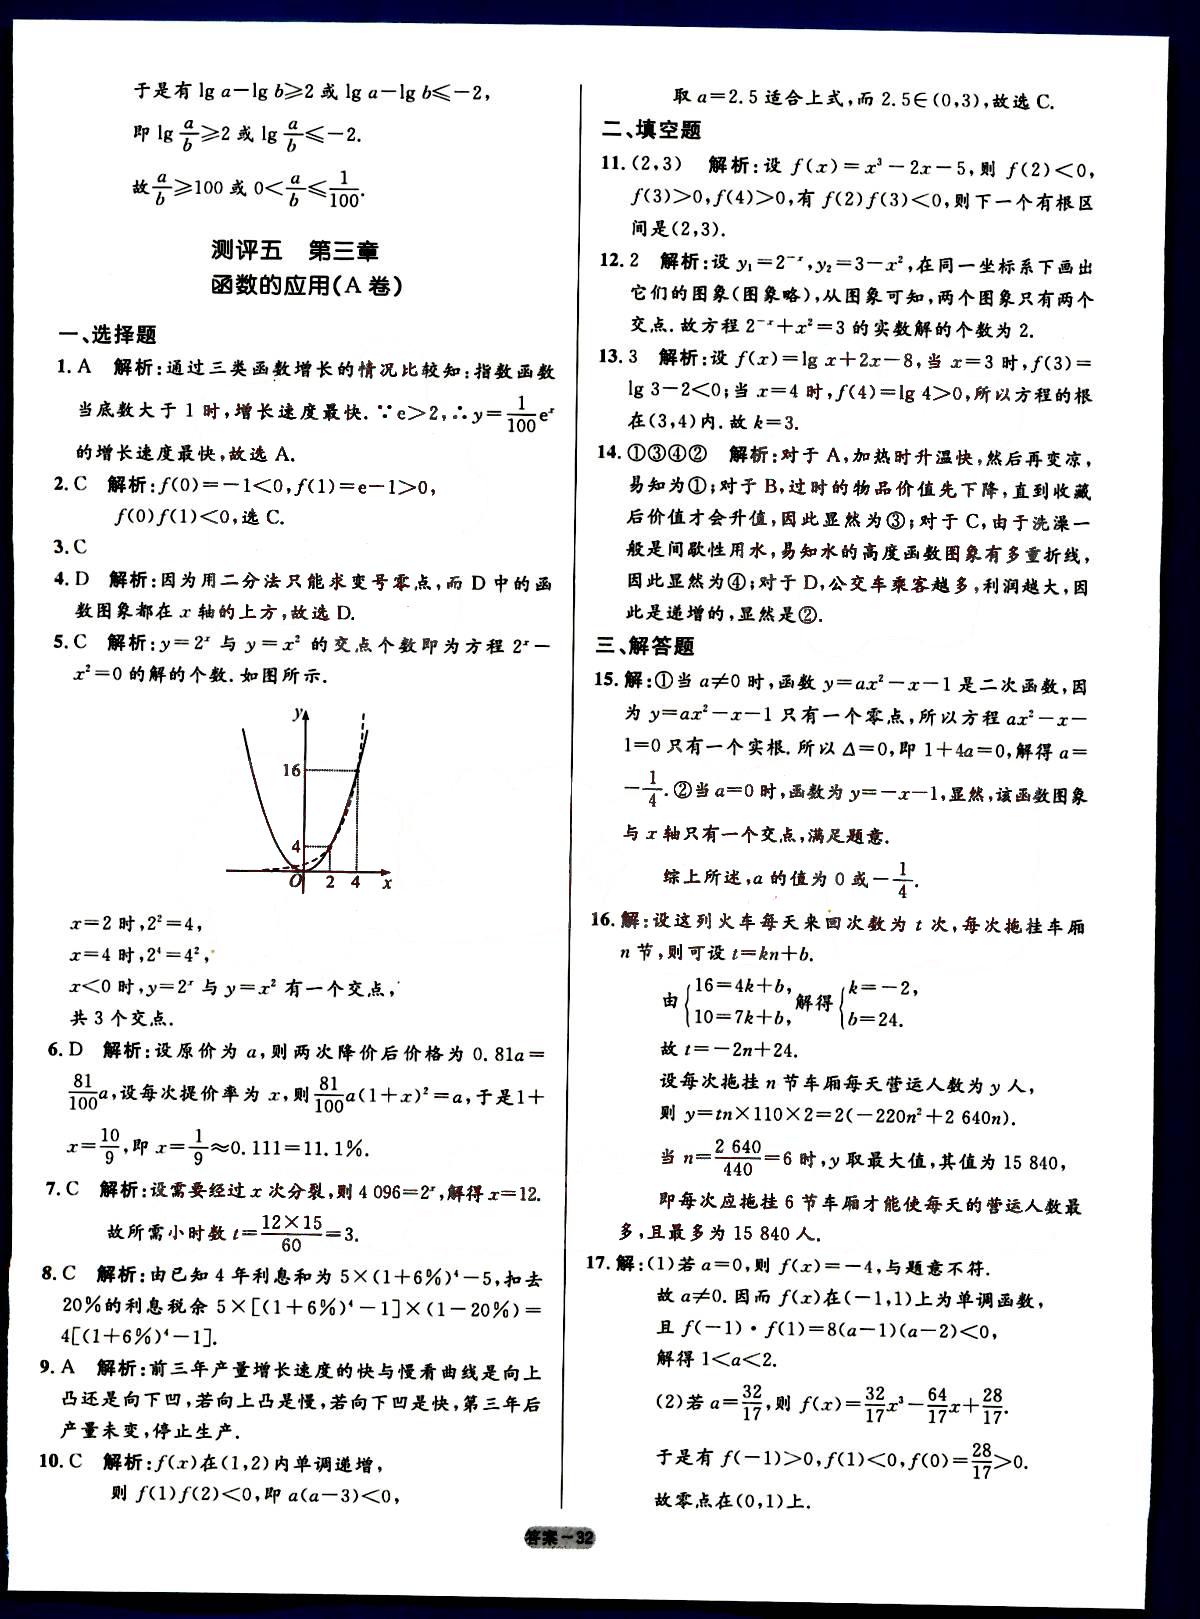 于是有 lg a－lg b≥2 或 lg a－lg b≤－2,
即 lg a/b≥2 或 lg a/b≤－2.
故 a/b≥100 或 0＜a/b≤1/100.
测评五 第三章
函数的应用(A 卷)
一、选择题
1. A 解析:通过三类函数增长的情况比较知:指数函数
当底数大于 1 时,增长速度最快.∵e＞2,∴y＝1/100 eˣ
的增长速度最快,故选 A.
2. C 解析:f(0)＝－1＜0,f(1)＝e－1＞0,
f(0)f(1)＜0,选 C.
3. C
4. D 解析:因为用二分法只能求变号零点,而 D 中的函
数图象都在 x 轴的上方,故选 D.
5. C 解析:y＝2ˣ 与 y＝x² 的交点个数即为方程 2ˣ－
x²＝0 的解的个数.如图所示.
y
16
4
O 2 4 x
x＝2 时,2²＝4,
x＝4 时,2⁴＝4²,
x＜0 时,y＝2ˣ 与 y＝x² 有一个交点,
共 3 个交点.
6. D 解析:设原价为 a,则两次降价后价格为 0.81a＝
81/100 a,设每次提价率为 x,则 81/100 a(1＋x)²＝a,于是1＋
x＝10/9,即 x＝1/9≈0.111＝11.1%.
7. C 解析:设需要经过 x 次分裂,则 4 096＝2ˣ,解得 x＝12.
故所需小时数 t＝12×15/60＝3.
8. C 解析:由已知 4 年利息和为 5×(1＋6%)⁴－5,扣去
20%的利息税余 5×[(1＋6%)⁴－1]×(1－20%)＝
4[(1＋6%)⁴－1].
9. A 解析:前三年产量增长速度的快与慢看曲线是向上
凸还是向下凹,若向上凸是慢,若向下凹是快,第三年后
产量未变,停止生产.
10. C 解析:f(x)在(1,2)内单调递增,
则 f(1)f(2)＜0,即 a(a－3)＜0,
取 a＝2.5 适合上式,而 2.5∈(0,3),故选 C.
二、填空题
11. (2,3) 解析:设 f(x)＝x³－2x－5,则 f(2)＜0,
f(3)＞0,f(4)＞0,有 f(2)f(3)＜0,则下一个有根区
间是(2,3).
12. 2 解析:设 y₁＝2⁻ˣ,y₂＝3－x²,在同一坐标系下画出
它们的图象(图象略),从图象可知,两个图象只有两个
交点.故方程 2⁻ˣ＋x²＝3 的实数解的个数为 2.
13. 3 解析:设 f(x)＝lg x＋2x－8,当 x＝3 时,f(3)＝
lg 3－2＜0;当 x＝4 时,f(4)＝lg 4＞0,所以方程的根
在(3,4)内.故 k＝3.
14. ①③④② 解析:对于 A,加热时升温快,然后再变凉,
易知为①;对于 B,过时的物品价值先下降,直到收藏
后价值才会升值,因此显然为③;对于 C,由于洗澡一
般是间歇性用水,易知水的高度函数图象有多重折线,
因此显然为④;对于 D,公交车乘客越多,利润越大,因
此是递增的,显然是②.
三、解答题
15. 解:①当 a≠0 时,函数 y＝ax²－x－1 是二次函数,因
为 y＝ax²－x－1 只有一个零点,所以方程 ax²－x－
1＝0 只有一个实根.所以 Δ＝0,即 1＋4a＝0,解得 a＝
－1/4.②当 a＝0 时,函数为 y＝－x－1,显然,该函数图象
与 x 轴只有一个交点,满足题意.
综上所述,a 的值为 0 或－1/4.
16. 解:设这列火车每天来回次数为 t 次,每次拖挂车厢
n 节,则可设 t＝kn＋b.
由{16＝4k＋b, 10＝7k＋b, 解得{k＝－2, b＝24.
故 t＝－2n＋24.
设每次拖挂 n 节车厢每天营运人数为 y 人,
则 y＝tn×110×2＝2(－220n²＋2 640n).
当 n＝2 640/440＝6 时,y 取最大值,其值为 15 840,
即每次应拖挂 6 节车厢才能使每天的营运人数最
多,且最多为 15 840 人.
17. 解:(1)若 a＝0,则 f(x)＝－4,与题意不符.
故 a≠0.因而 f(x)在(－1,1)上为单调函数,
且 f(－1)·f(1)＝8(a－1)(a－2)＜0,
解得 1＜a＜2.
(2)若 a＝32/17,则 f(x)＝32/17 x³－64/17 x＋28/17.
于是有 f(－1)＞0,f(1)＜0,f(0)＝28/17＞0.
故零点在(0,1)上.
答案－32